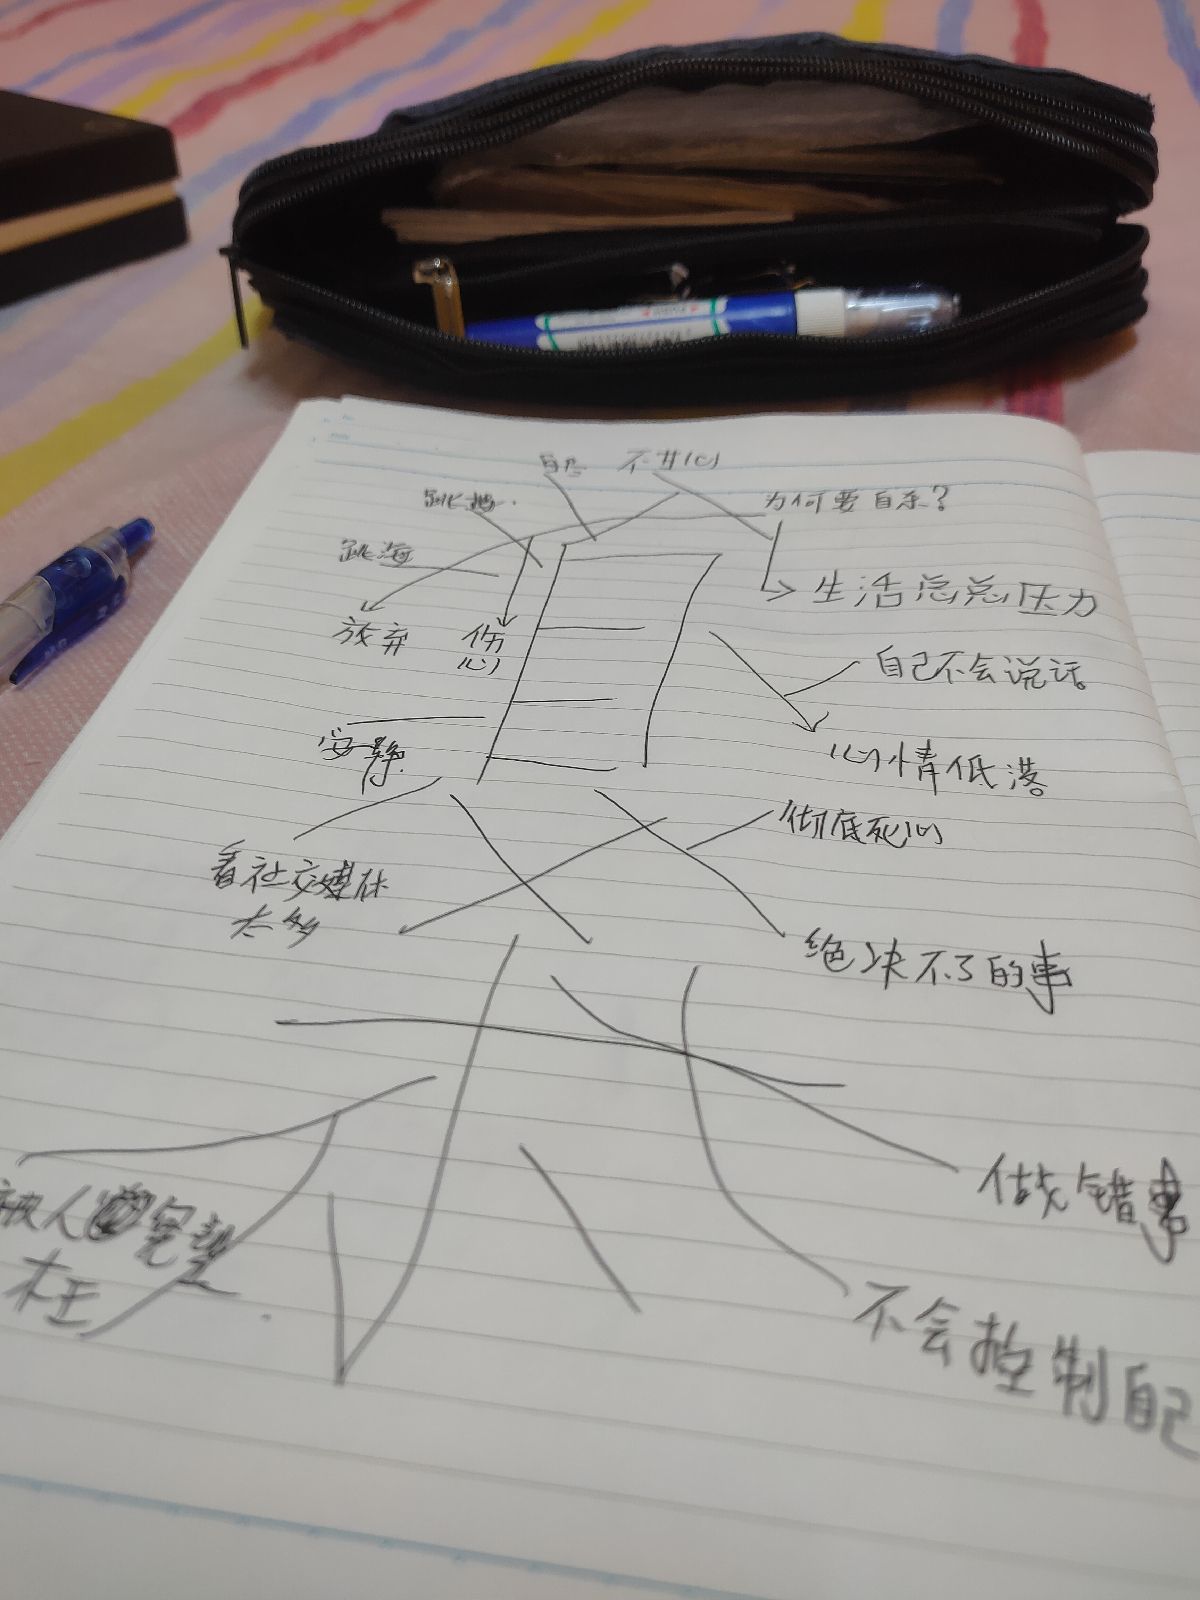 自尽 不甘心
跳楼
为何要自杀?
跳海
生活总总压力
放弃
伤心
自己不会说话
安静
心情低落
彻底死心
看社交媒体
太多
绝决不了的事
做错事
被人冤
枉
不会控制自己